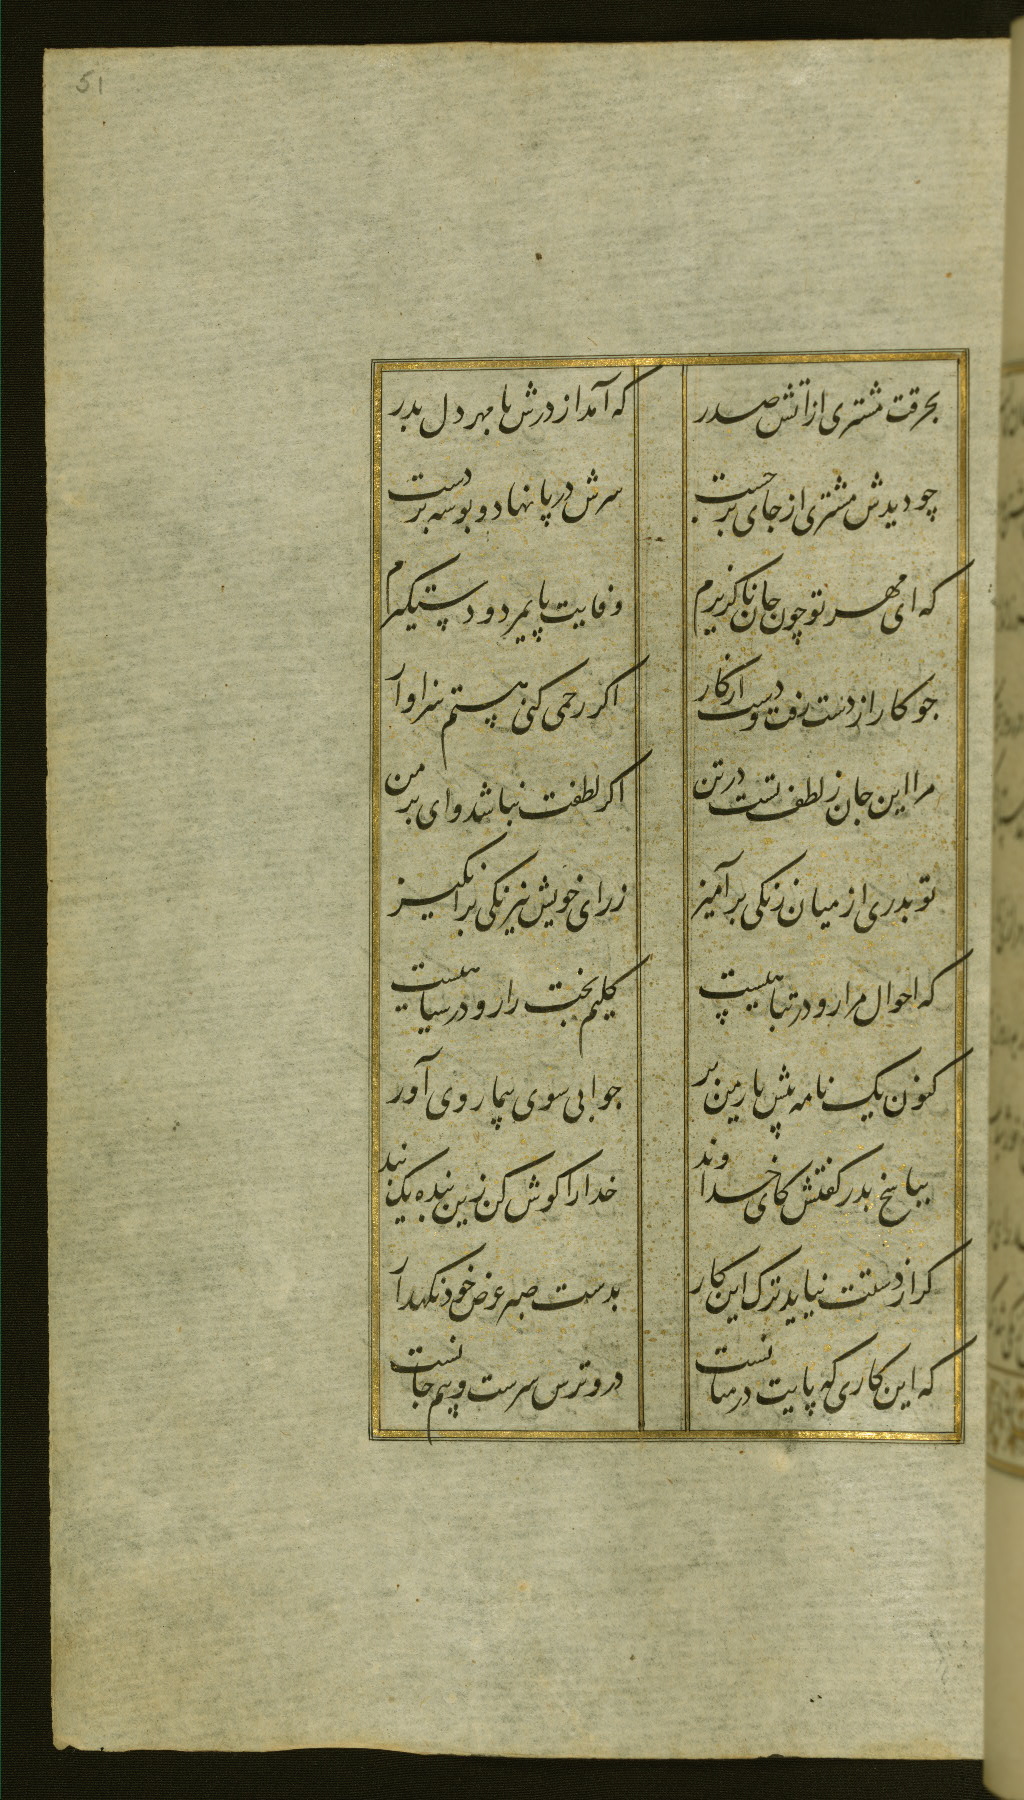 51
بحرقت مشتری از آتش صدر
که آمد از درش با مهر دل بدر
چو دیدش مشتری از جای برجست
سرش در پا نهاد و بوسه بر دست
که ای مهر تو چون جان ناکزیرم
وفایت پایمرد و دستیکرم
جو کار از دست رفت و دست از کار
اکر رحمی کنی هستم سزاوار
مرا این جان ز لطف تست در تن
اکر لطفت نباشد وای بر من
تو بدری از میان زنکی برآمیز
ز رای خویش نیرنکی برانکیز
که احوال مرا رو در تباهیست
کلیم بخت را رو در سیاهیست
کنون یک نامه پیش یار من بر
جوابی سوی بیمار وی آور
بپاسخ بدر کفتش کای خداوند
خدا را کوش کن زین بنده یک پند
کر از دستت نیاید ترک این کار
بدست صبر عرض خود نکهدار
که این کاری که پایت در میانست
درو ترس سرست و بیم جانست